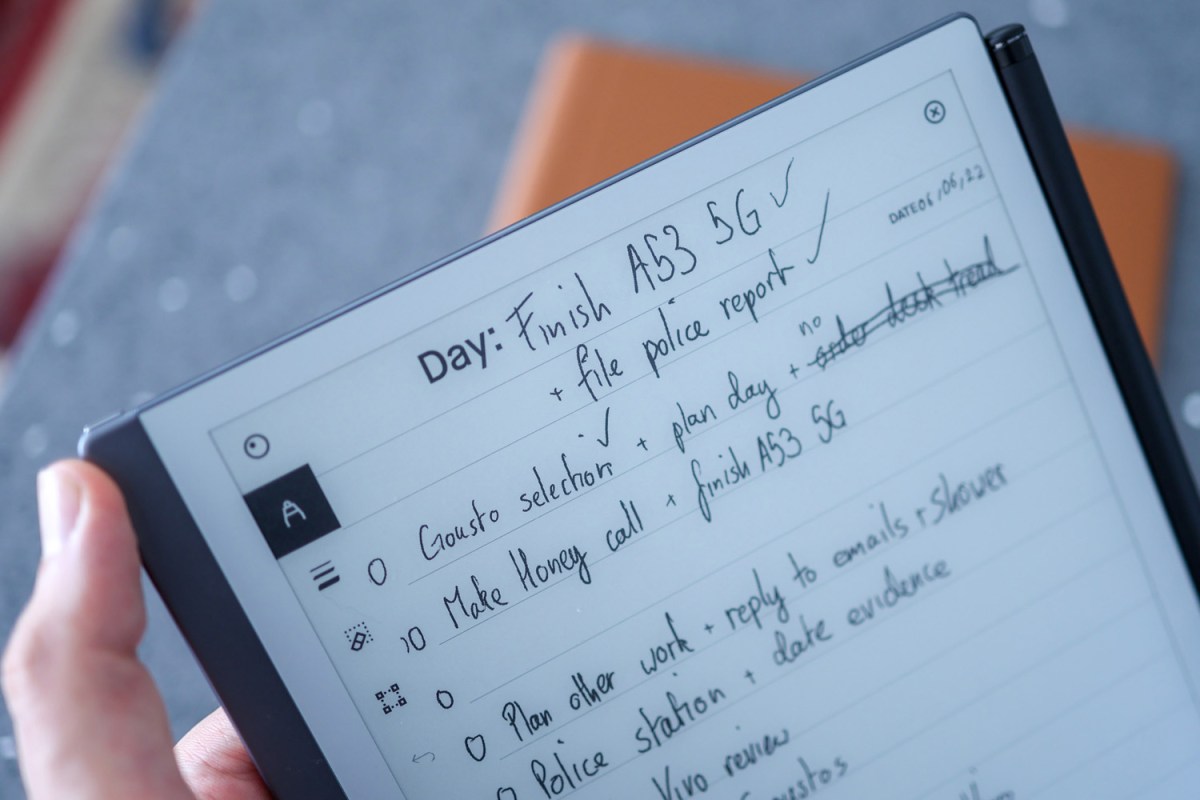 Day: Finish A53 5G ✓
+ file police report ✓
DATE 06/06/22
Gousto selection ✓ + plan day + no order desk tread
Make Honey call + finish A53 5G
Plan other work + reply to emails + Shower
Police station + date evidence
Vivo review